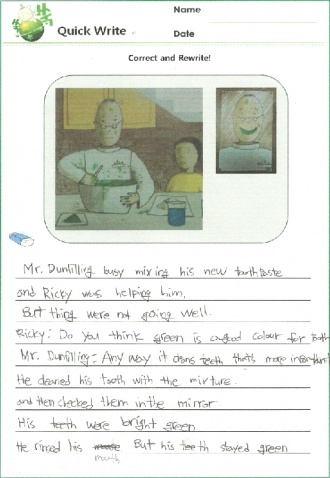 Quick Write
Name
Date
Correct and Rewrite!
Mr. Dunfilling busy mixing his new toothtaste
and Ricky was helping him.
But thing were not going well.
Ricky: Do you think green is a good colour for tooth
Mr. Dunfilling: Any way it cleans teeth that's more important
He cleaned his tooth with the mixture.
and then checked them in the mirror
His teeth were bright green
He rinsed his mouth But his teeth stayed green